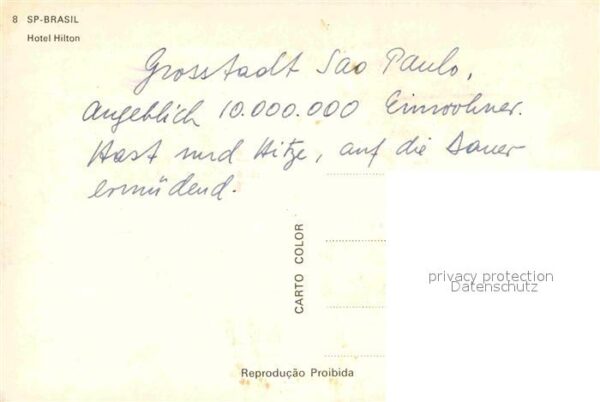 8 SP-BRASIL
Hotel Hilton
Grosstadt Sao Paulo,
angeblich 10.000.000 Einwohner.
Hast und Hitze, auf die Dauer
ermüdend.
CARTO COLOR
privacy protection
Datenschutz
Reprodução Proibida